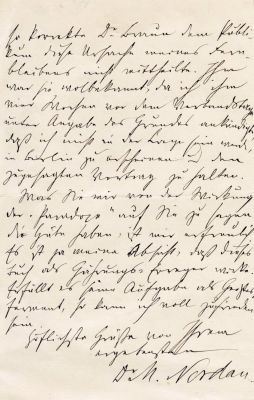 so korrekte Dr. Braun dem Publi-
kum diese Ursache meines Fern-
bleibens nicht mittheilte. Ihm
war sie wolbekannt, da ich ihm
vier Wochen vor dem Verbandstage
unter Angabe des Grundes ankündigte
daß ich nicht in der Lage sein werde,
in Berlin zu erscheinen u. den
zugesagten Vortrag zu halten.
Was Sie mir von der Wirkung
der „Paradoxe“ auf Sie zu sagen
die Güte haben, ist mir erfreulich
Es ist ja meine Absicht, daß dieses
Buch als Gährungs-Erreger wirke
Erfüllt es seine Aufgabe als
Ferment, so kann ich voll zufrieden
sein.
Höflichste Grüße von Ihrem
ergebensten
Dr. M. Nordau.